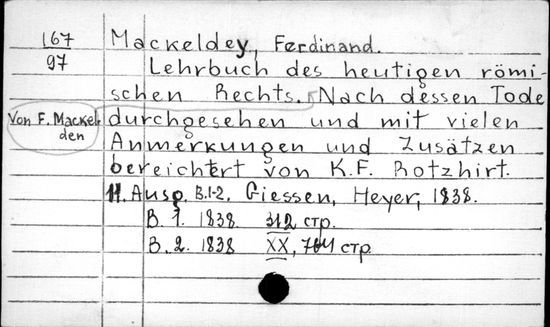 167
97
Mackeldey, Ferdinand.
Lehrbuch des heutigen römi-
schen Rechts. Nach dessen Tode
Von F. Mackel-
den
durchgesehen und mit vielen
Anmerkungen und Zusätzen
bereichert von K.F. Rotzhirt.
11. Ausg. B.1-2. Giessen, Heyer, 1838.
B. 1. 1838. 312 стр.
B. 2. 1838 XX, стр.